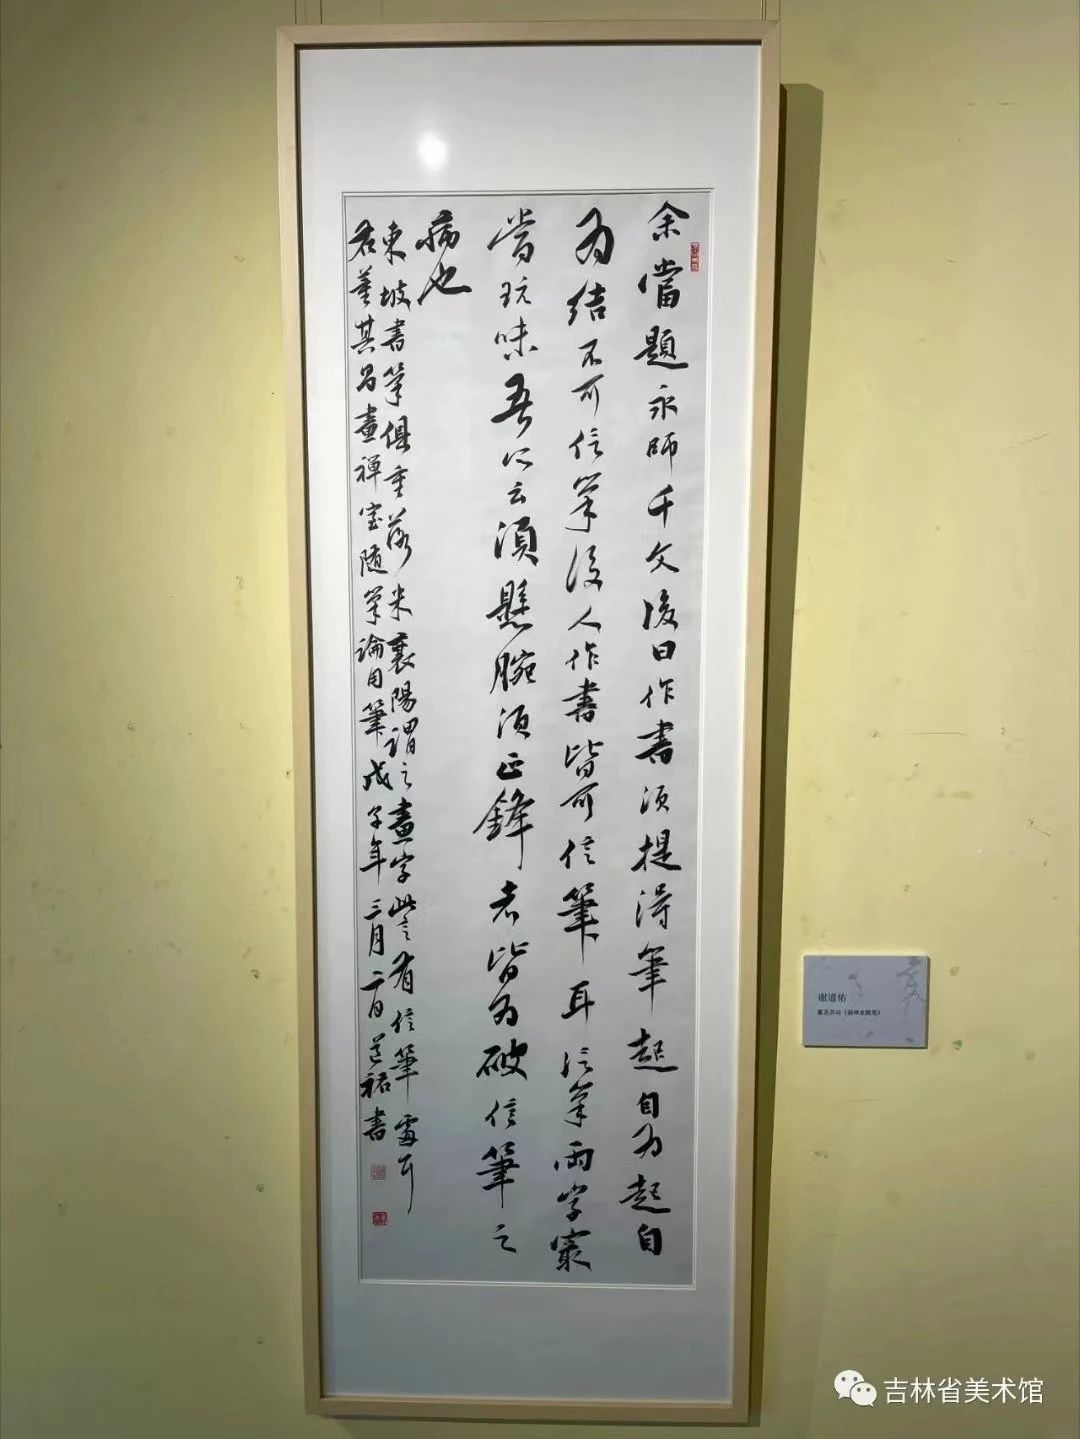 余嘗題永師千文後曰作書須提得筆起自為起自
為結不可信筆後人作書皆可信筆耳信筆兩字最
當玩味吾所云須懸腕須正鋒者皆為破信筆之
病也
東坡書筆俱重落米襄陽謂之畫字此言有信筆處耳
右董其昌畫禪室随筆論用筆戊子年三月二日道祐書
谢道佑
董其昌论《画禅室随笔》
吉林省美术馆